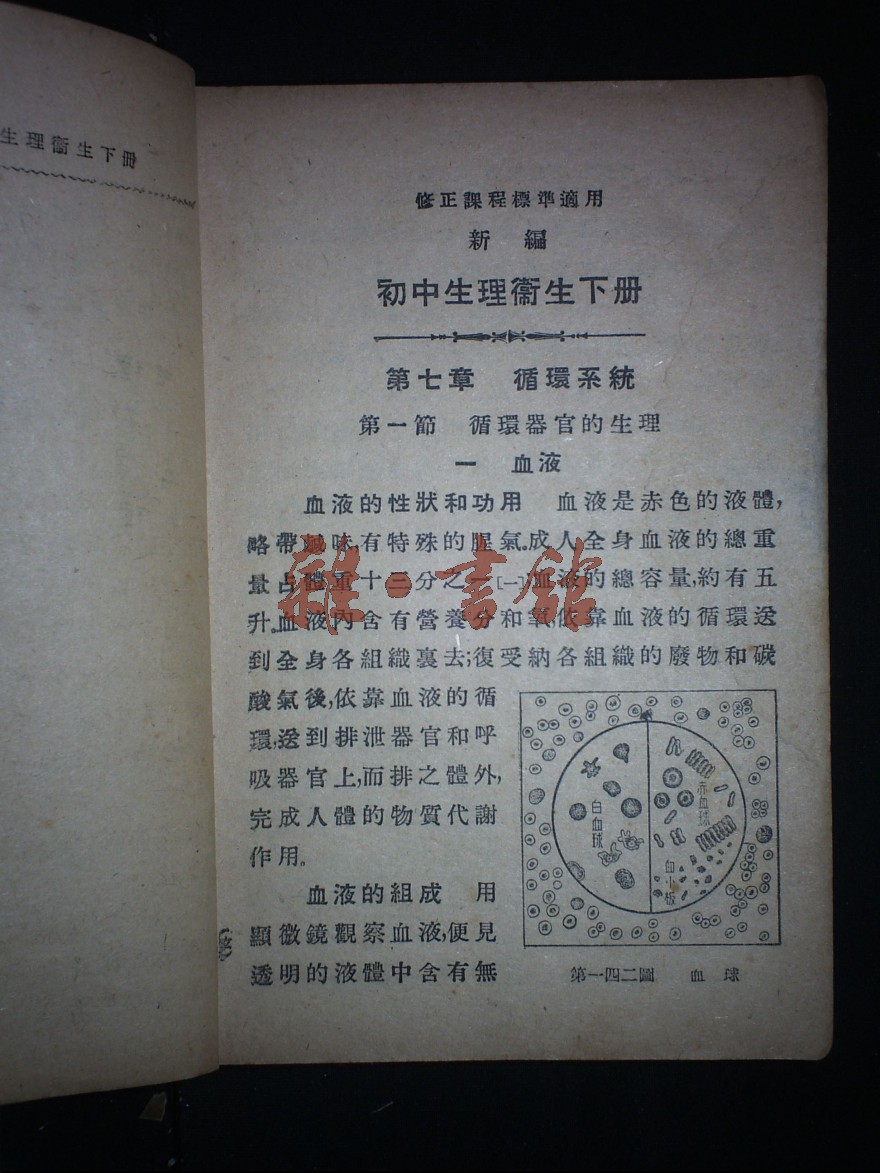 生理衞生下册
修正課程標準適用
新編
初中生理衞生下册
第七章 循環系統
第一節 循環器官的生理
一 血液
血液的性狀和功用 血液是赤色的液體,
略帶鹹味,有特殊的腥氣。成人全身血液的總重
量占體重十三分之一[一]血液的總容量,約有五
升。血液內含有營養分和氧,依靠血液的循環送
到全身各組織裏去;復受納各組織的廢物和碳
酸氣後,依靠血液的循
環,送到排泄器官和呼
吸器官上,而排之體外,
完成人體的物質代謝
作用。
血液的組成 用
顯微鏡觀察血液,便見
透明的液體中含有無
白血球
赤血球
血小板
第一四二圖 血球
雜·書館